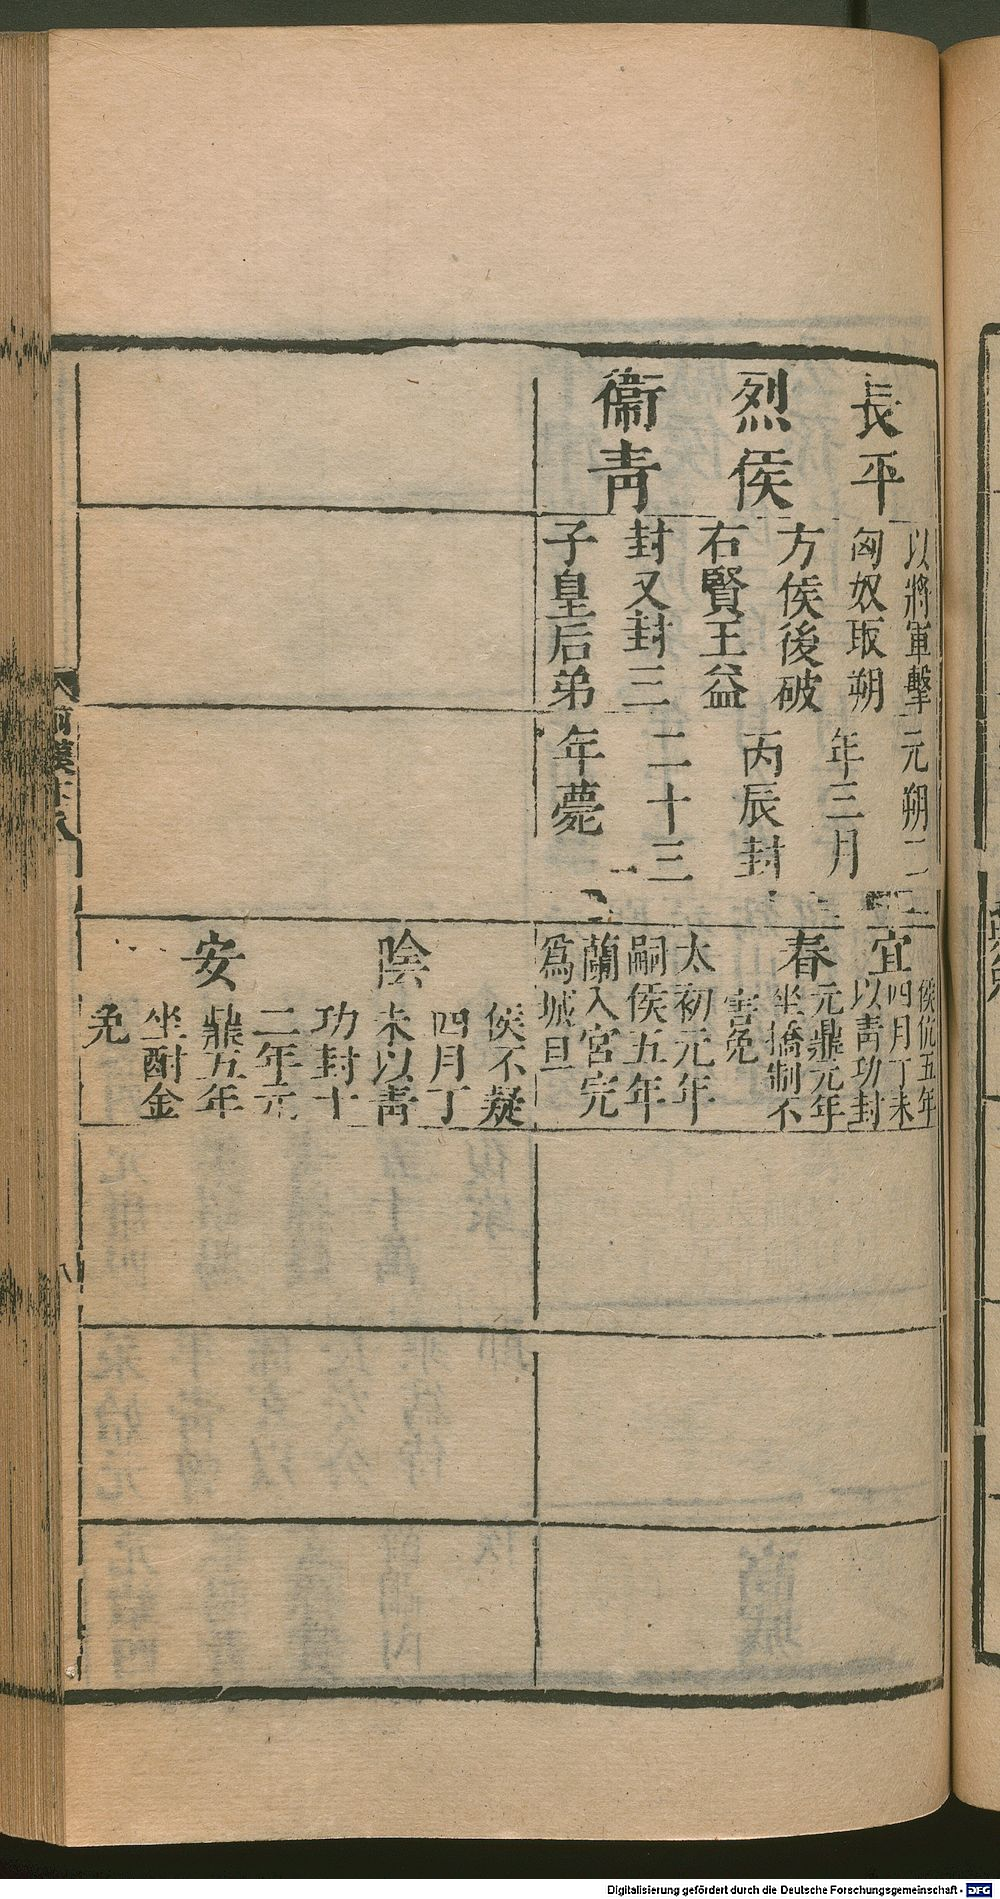 長平
烈侯
衞青
以將軍擊
匈奴取朔
方侯後破
右賢王益
封又封三
子皇后弟
元朔二
年三月
丙辰封
二十三
年薨
宜
春
侯伉五年
四月丁未
以青功封
元鼎元年
坐撟制不
害免
太初元年
嗣侯五年
蘭入宮完
爲城旦
陰
安
侯不疑
四月丁
未以青
功封十
二年元
鼎五年
坐酎金
免
前漢
八
Digitalisierung gefördert durch die Deutsche Forschungsgemeinschaft - DFG